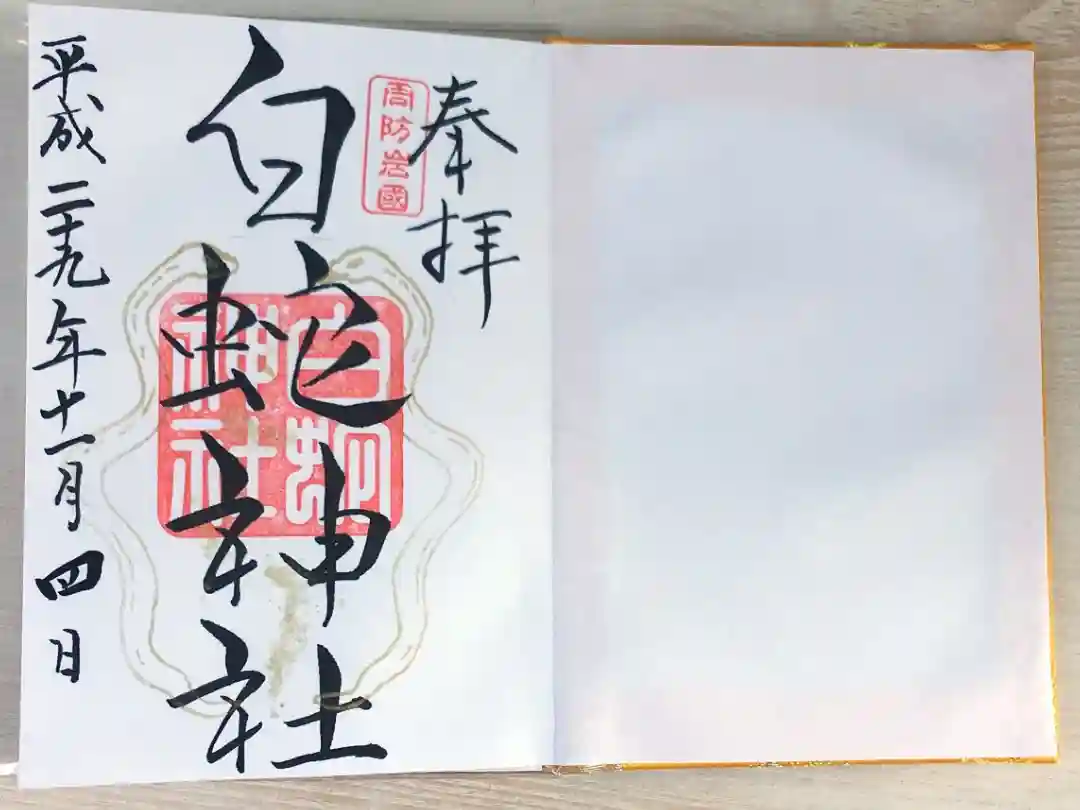 奉拝
周防岩國
白蛇神社
白蛇神社
平成二十九年十一月四日